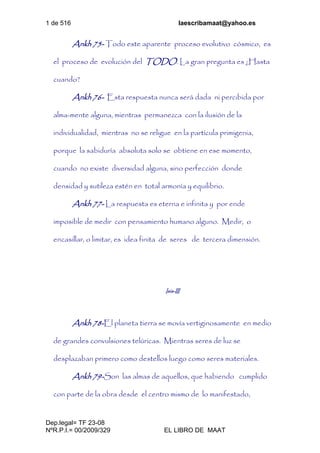 1 de 516 laescribamaat@yahoo.es
Ankh 75- Todo este aparente proceso evolutivo cósmico, es
el proceso de evolución del TODO. La gran pregunta es ¿Hasta
cuando?
Ankh 76- Esta respuesta nunca será dada ni percibida por
alma-mente alguna, mientras permanezca con la ilusión de la
individualidad, mientras no se religue en la partícula primigenia,
porque la sabiduría absoluta solo se obtiene en ese momento,
cuando no existe diversidad alguna, sino perfección donde
densidad y sutileza estén en total armonía y equilibrio.
Ankh 77- La respuesta es eterna e infinita y por ende
imposible de medir con pensamiento humano alguno. Medir, o
encasillar, o limitar, es idea finita de seres de tercera dimensión.
Ankh 78-El planeta tierra se movía vertiginosamente en medio
de grandes convulsiones telúricas. Mientras seres de luz se
desplazaban primero como destellos luego como seres materiales.
Ankh 79-Son las almas de aquellos, que habiendo cumplido
con parte de la obra desde el centro mismo de lo manifestado,
Dep.legal= TF 23-08
NºR.P.I.= 00/2009/329 EL LIBRO DE MAAT